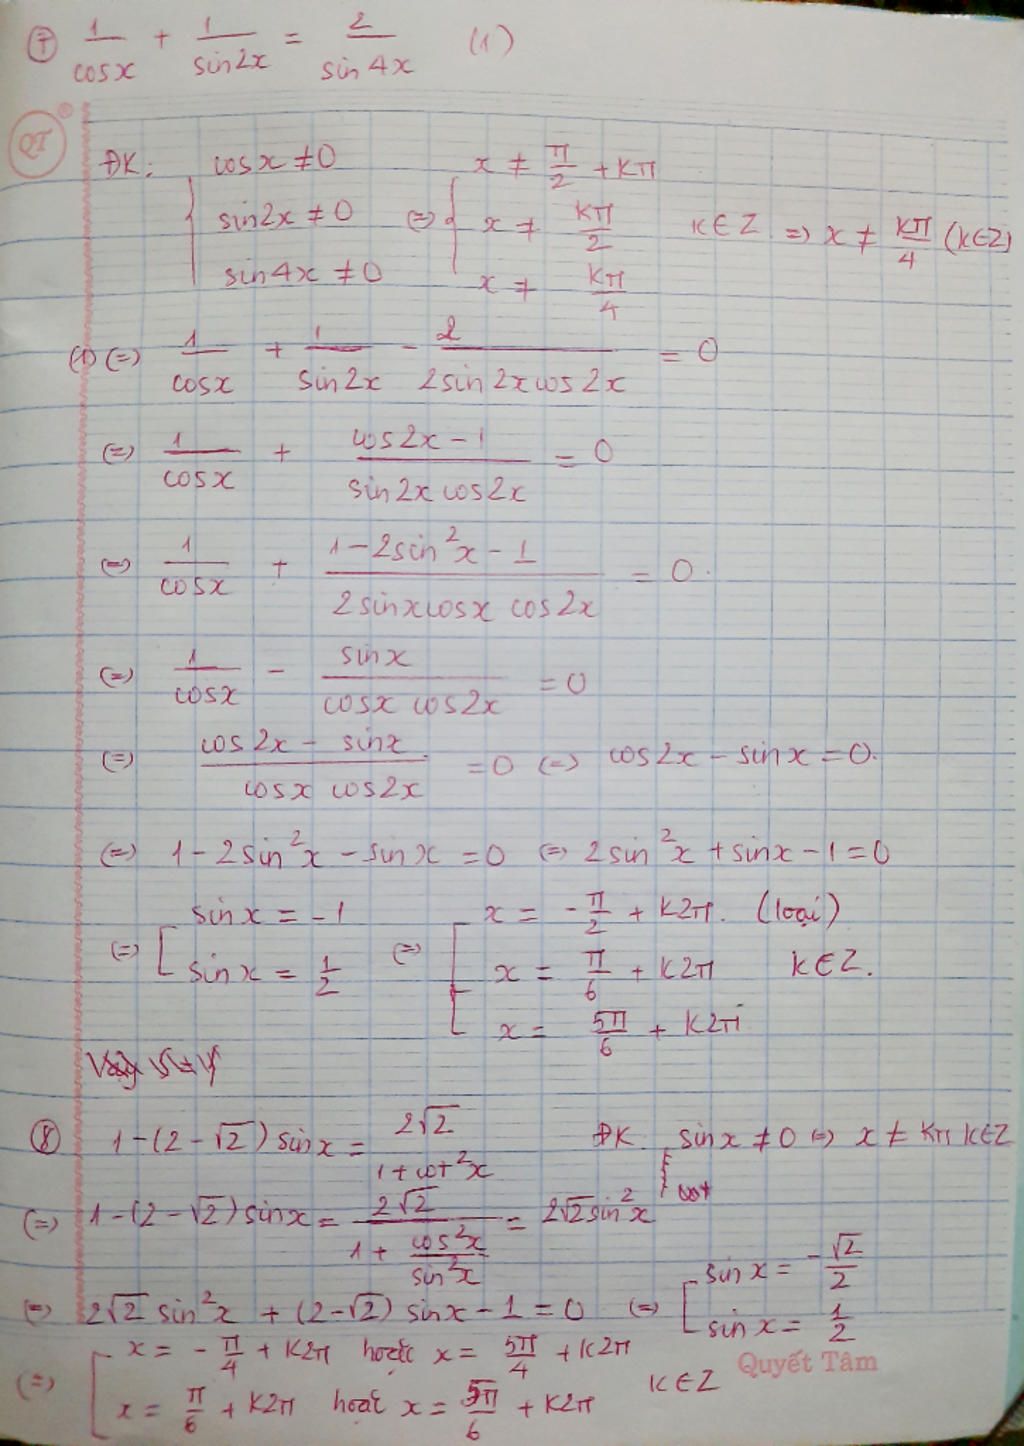 ⑦ 1/cosx + 1/sin2x = 2/sin4x (1)
QT
ĐK: { cosx ≠ 0 ; sin2x ≠ 0 ; sin4x ≠ 0 (=) { x ≠ π/2 + Kπ ; x ≠ Kπ/2 ; x ≠ Kπ/4 K∈Z => x ≠ Kπ/4 (K∈Z)
(1) (=) 1/cosx + 1/sin2x - 2/2sin2xcos2x = 0
(=) 1/cosx + cos2x-1/sin2x cos2x = 0
(=) 1/cosx + 1-2sin²x-1/2sinxcosx cos2x = 0.
(=) 1/cosx - sinx/cosx cos2x = 0
(=) cos2x - sinx/cosx cos2x = 0 (=) cos2x - sinx = 0.
(=) 1-2sin²x - sinx = 0 (=) 2sin²x + sinx - 1 = 0
(=) [ sinx = -1 ; sinx = 1/2 (=) [ x = -π/2 + K2π. (loại) ; x = π/6 + K2π ; x = 5π/6 + K2π K∈Z.
⑧ 1-(2-√2)sinx = 2√2/1+cot²x ĐK: sinx ≠ 0 (=) x ≠ Kπ K∈Z
cot
(=) 1-(2-√2)sinx = 2√2/1 + cos²x/sin²x = 2√2sin²x
(=) 2√2 sin²x + (2-√2) sinx - 1 = 0 (=) [ sinx = -√2/2 ; sinx = 1/2
(=) [ x = -π/4 + K2π hoặc x = 5π/4 + K2π
x = π/6 + K2π hoặc x = 5π/6 + K2π K∈Z
Quyết Tâm